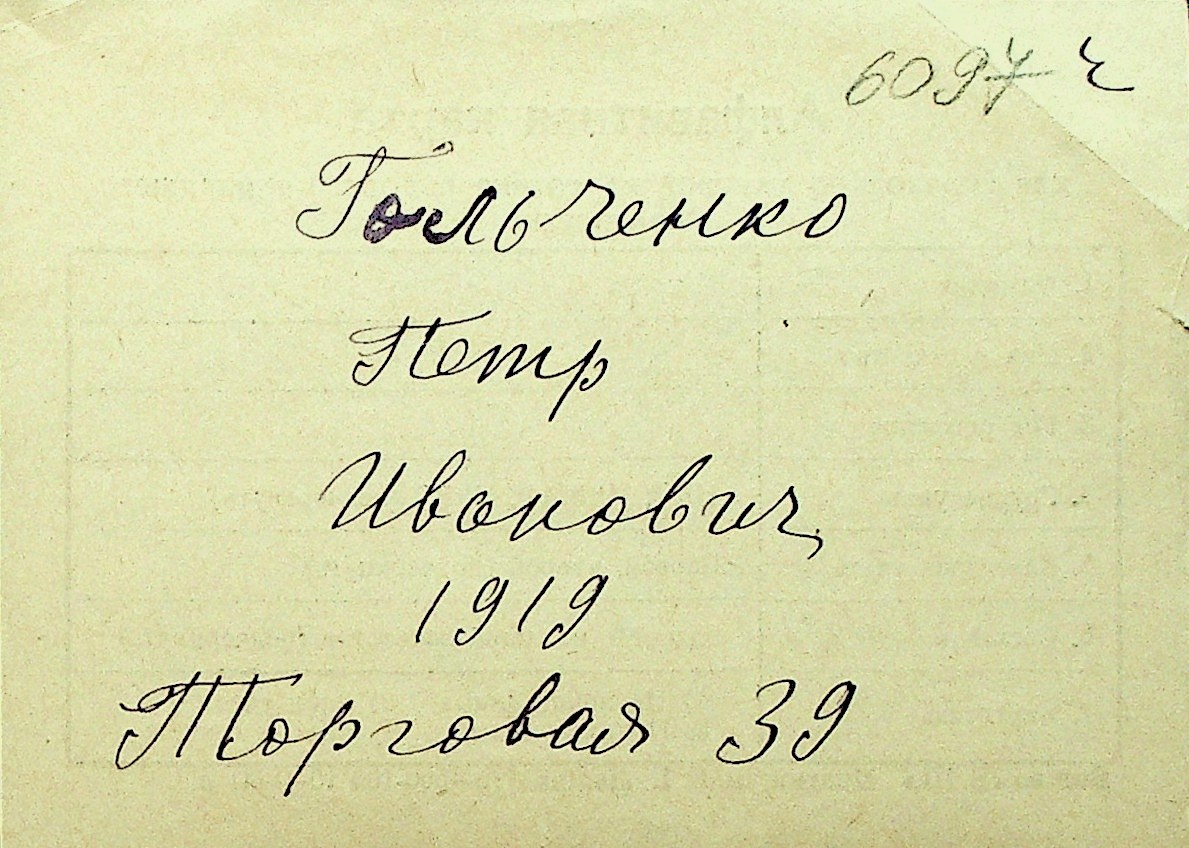 6097 ч
Гольченко
Петр
Иванович
1919
Торговая 39